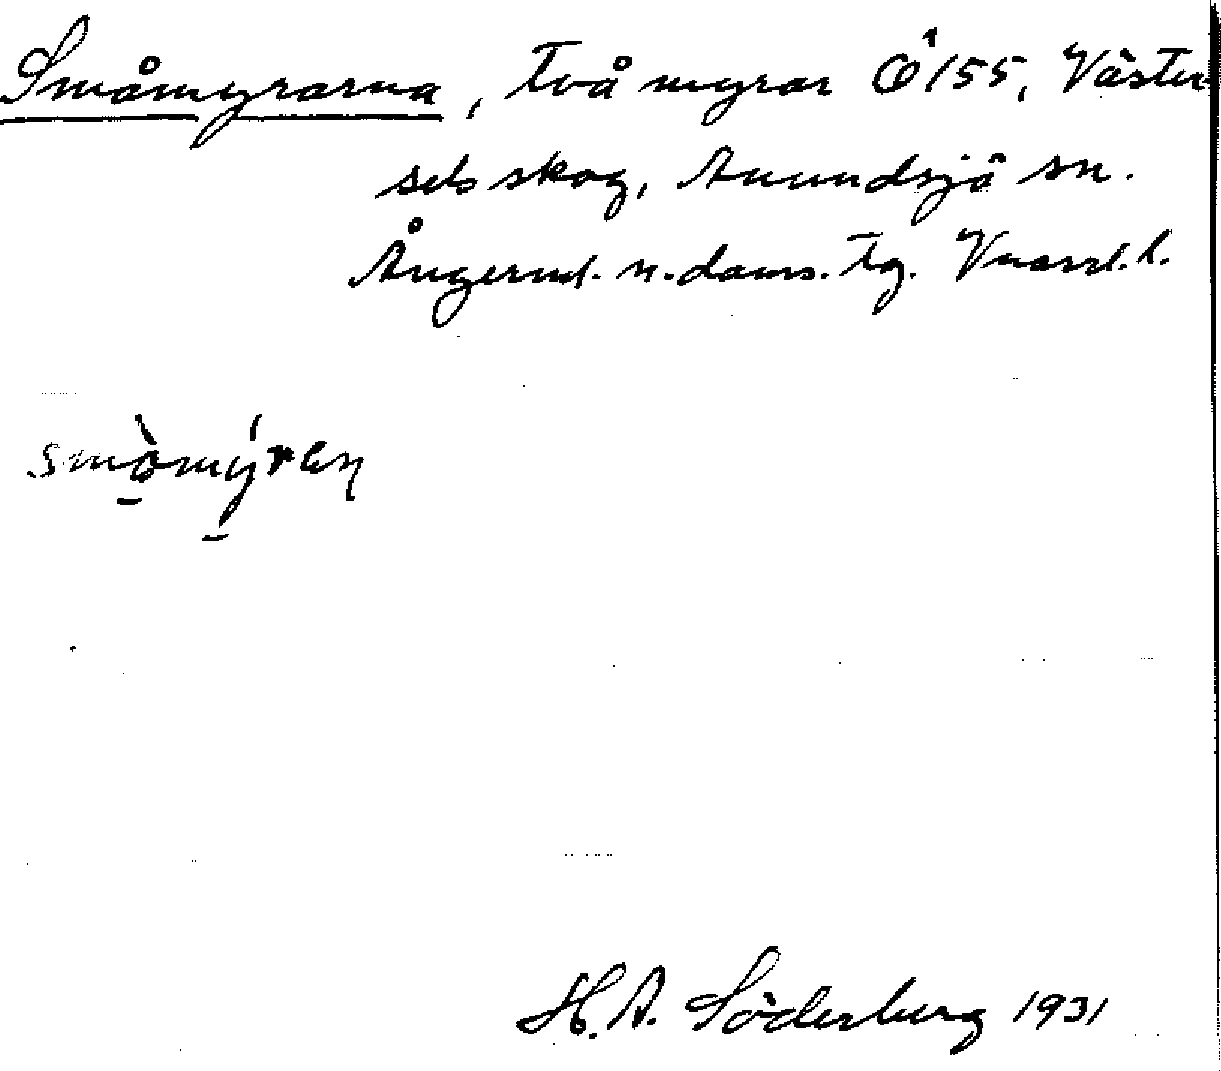 Småmyrarna, två myrar Ö 155, Väster
sels skog, Anundsjö sn.
Ångerml. n. doms. tg. Vnorrl. l.
smòmýren
H. A. Söderberg 1931